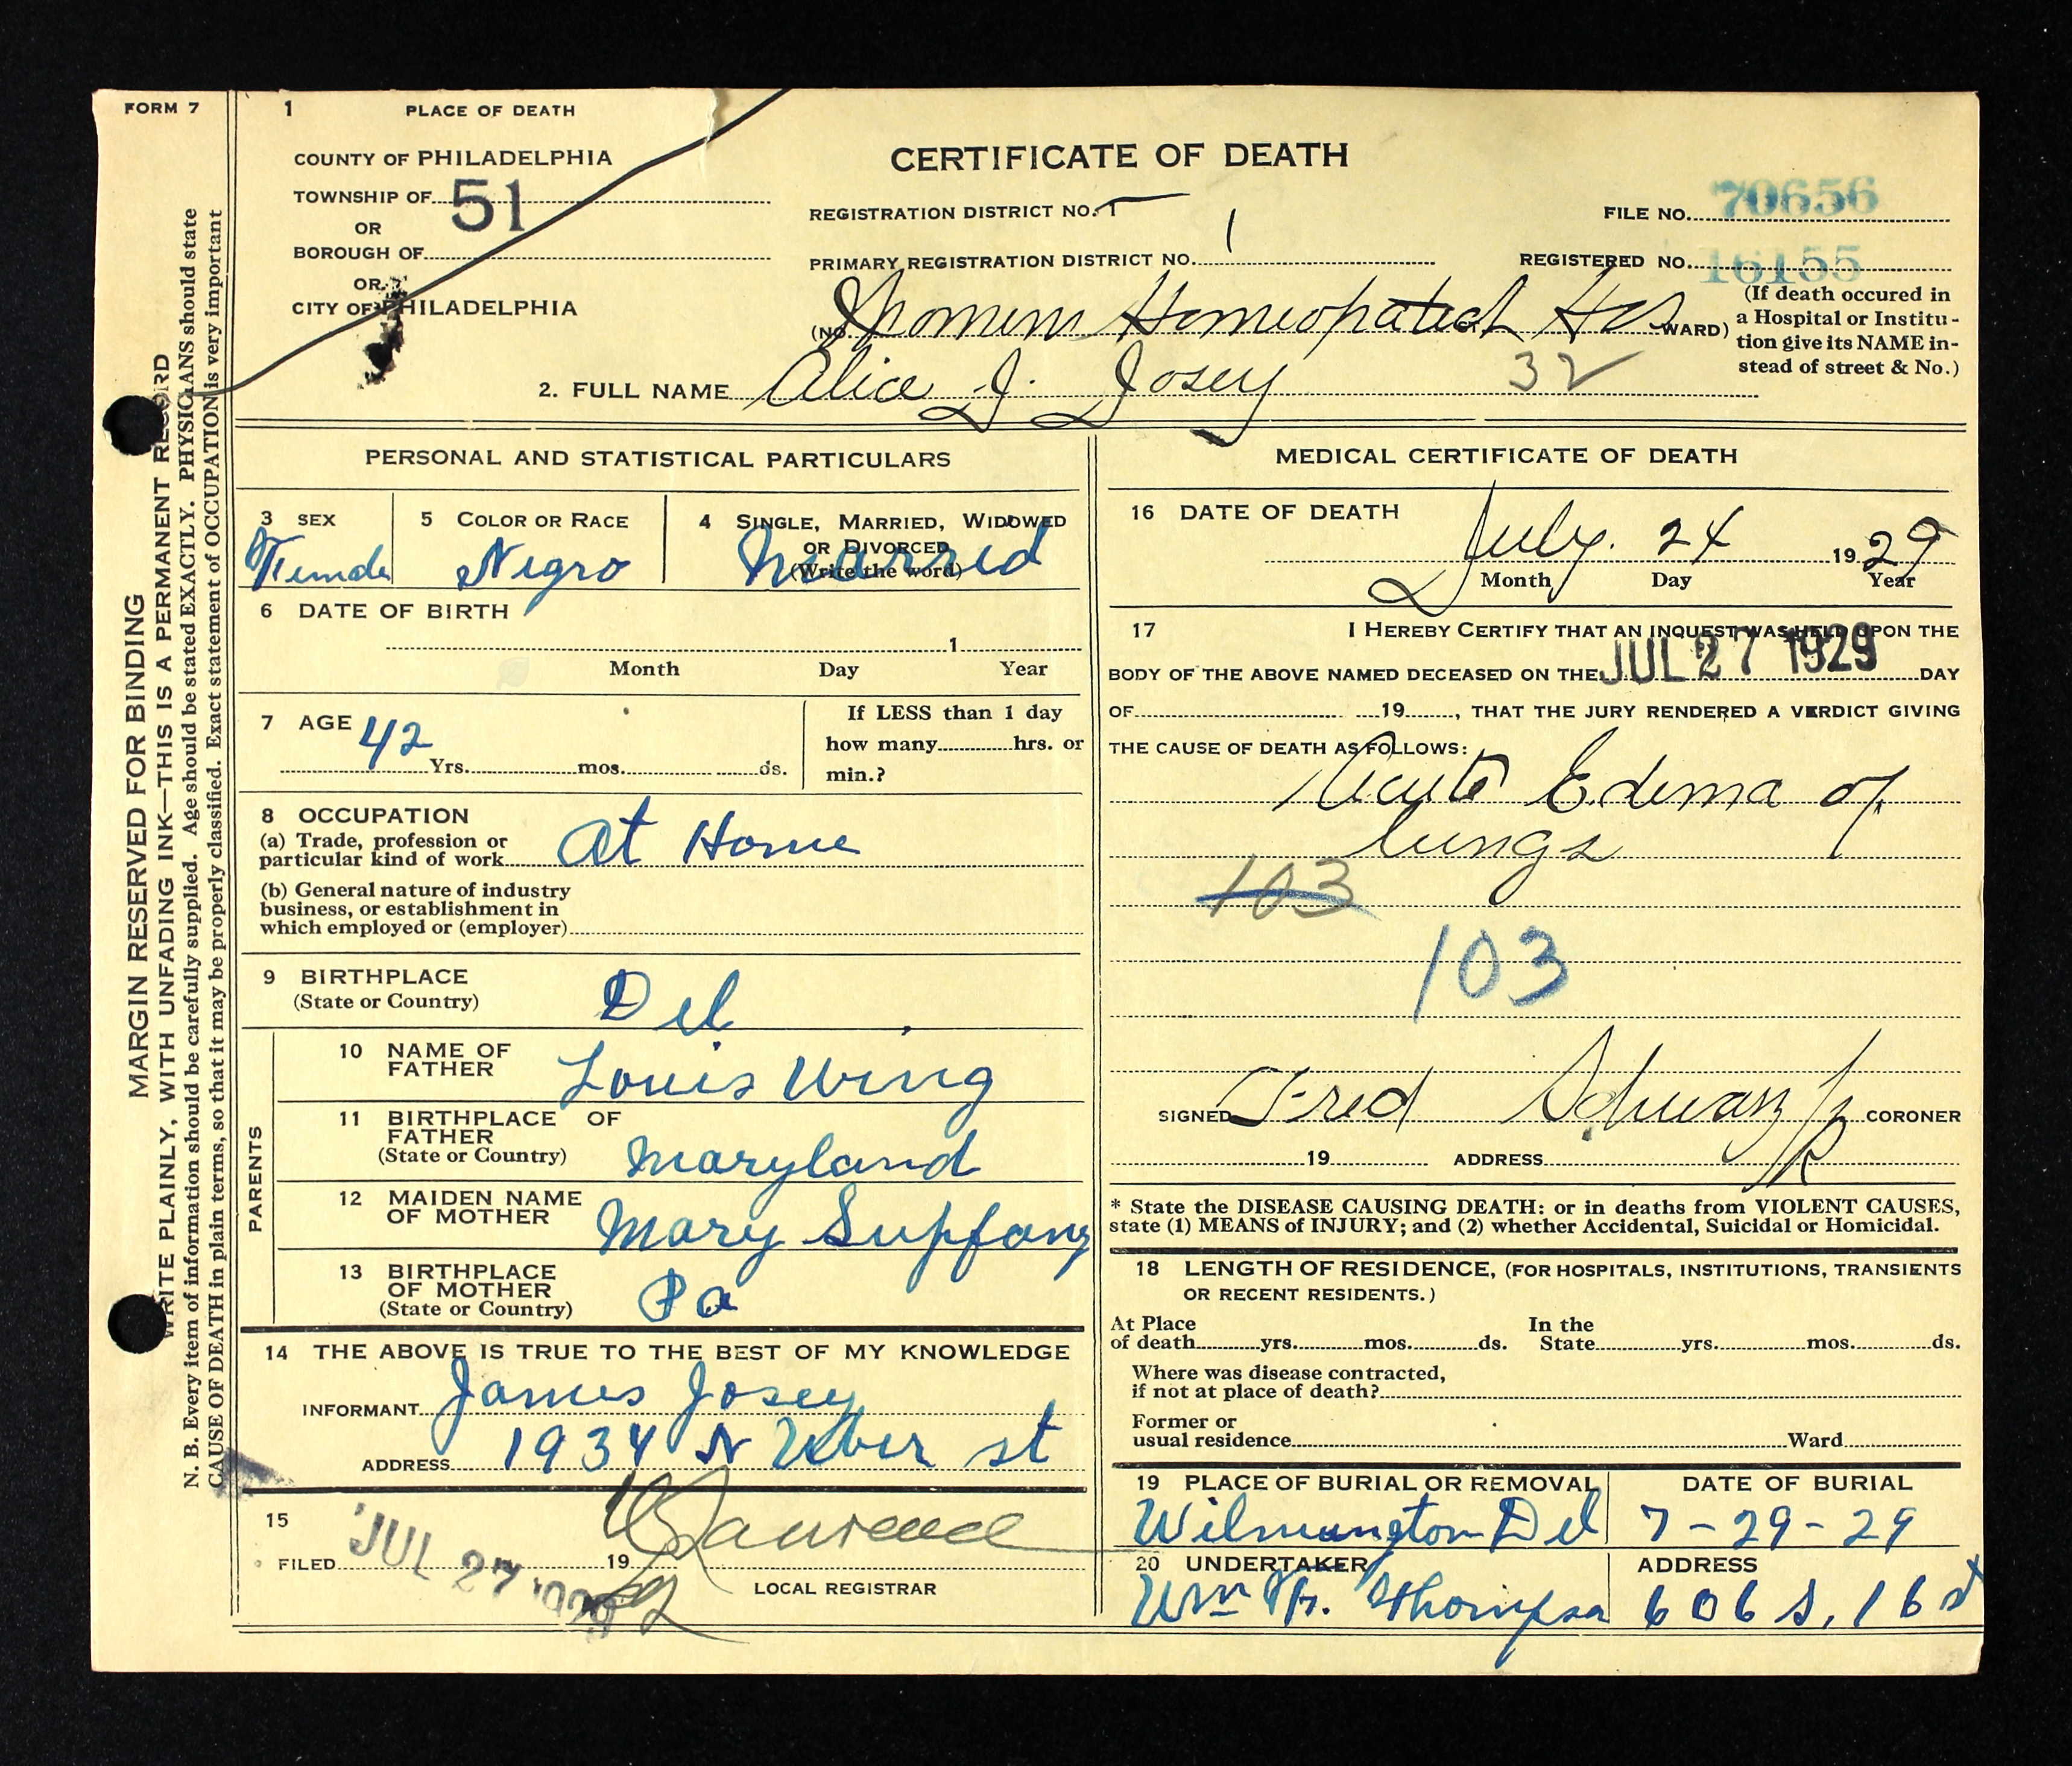 FORM 7
MARGIN RESERVED FOR BINDING
WRITE PLAINLY, WITH UNFADING INK—THIS IS A PERMANENT RECORD
N. B. Every item of information should be carefully supplied. Age should be stated EXACTLY. PHYSICIANS should state
CAUSE OF DEATH in plain terms, so that it may be properly classified. Exact statement of OCCUPATION is very important
1 PLACE OF DEATH
COUNTY OF PHILADELPHIA
TOWNSHIP OF 51
OR
BOROUGH OF
OR
CITY OF PHILADELPHIA
CERTIFICATE OF DEATH
REGISTRATION DISTRICT NO. 1
FILE NO. 70656
PRIMARY REGISTRATION DISTRICT NO. 1
REGISTERED NO. 16155
(NO. Womens Homeopatich Hos WARD)
(If death occured in
a Hospital or Institu-
tion give its NAME in-
stead of street & No.)
2. FULL NAME Alice J. Josey 32
PERSONAL AND STATISTICAL PARTICULARS
3 SEX
Female
5 COLOR OR RACE
Negro
4 SINGLE, MARRIED, WIDOWED
OR DIVORCED
(Write the word)
Married
6 DATE OF BIRTH
1
Month Day Year
7 AGE 42
Yrs. mos. ds.
If LESS than 1 day
how many hrs. or
min.?
8 OCCUPATION
(a) Trade, profession or
particular kind of work At Home
(b) General nature of industry
business, or establishment in
which employed or (employer)
9 BIRTHPLACE
(State or Country) Del.
PARENTS
10 NAME OF
FATHER Louis Wing
11 BIRTHPLACE OF
FATHER
(State or Country) Maryland
12 MAIDEN NAME
OF MOTHER Mary
13 BIRTHPLACE
OF MOTHER
(State or Country) Pa
14 THE ABOVE IS TRUE TO THE BEST OF MY KNOWLEDGE
INFORMANT James Josey
ADDRESS 1934 N Uber st
15
FILED JUL 27 1929 19
LOCAL REGISTRAR
MEDICAL CERTIFICATE OF DEATH
16 DATE OF DEATH July 24 1929
Month Day Year
17 I HEREBY CERTIFY THAT AN INQUEST WAS HELD UPON THE
BODY OF THE ABOVE NAMED DECEASED ON THE JUL 27 1929 DAY
OF 19, THAT THE JURY RENDERED A VERDICT GIVING
THE CAUSE OF DEATH AS FOLLOWS:
Acute Edema of
lungs
103
103
SIGNED Fred Schwarz Jr CORONER
19 ADDRESS
* State the DISEASE CAUSING DEATH: or in deaths from VIOLENT CAUSES,
state (1) MEANS of INJURY; and (2) whether Accidental, Suicidal or Homicidal.
18 LENGTH OF RESIDENCE, (FOR HOSPITALS, INSTITUTIONS, TRANSIENTS
OR RECENT RESIDENTS.)
At Place In the
of death yrs. mos. ds. State yrs. mos. ds.
Where was disease contracted,
if not at place of death?
Former or
usual residence Ward
19 PLACE OF BURIAL OR REMOVAL
Wilmington Del
DATE OF BURIAL
7-29-29
20 UNDERTAKER
Wm H. Thompson
ADDRESS
606 S. 16 st